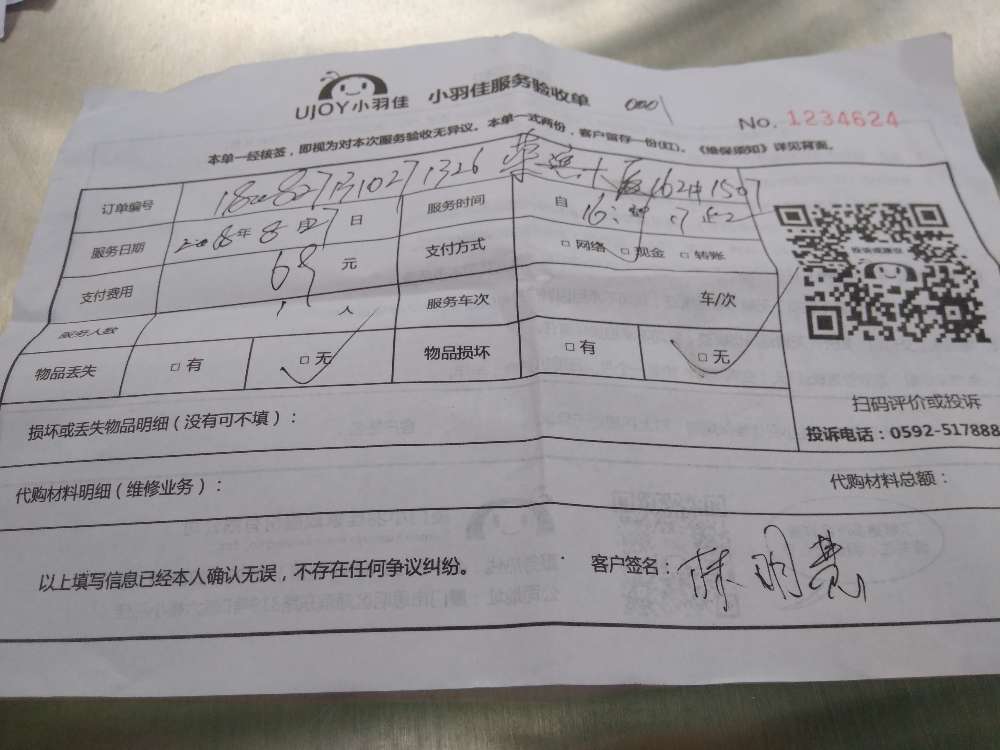 UJOY小羽佳 小羽佳服务验收单
No. 1234624
本单一经核签，即视为对本次服务验收无异议。本单一式两份，客户留存一份(红)。《维保须知》详见背面。
订单编号
服务日期 年 8 月 7 日 服务时间 自
支付费用 69 元 支付方式 □ 网络 □ 现金 □ 转账
服务人数 1 人 服务车次 车/次
物品丢失 □ 有 □ 无 物品损坏 □ 有 □ 无
扫码评价或投诉
投诉电话：0592-517888
损坏或丢失物品明细（没有可不填）：
代购材料明细（维修业务）： 代购材料总额：
以上填写信息已经本人确认无误，不存在任何争议纠纷。 客户签名：林明慧